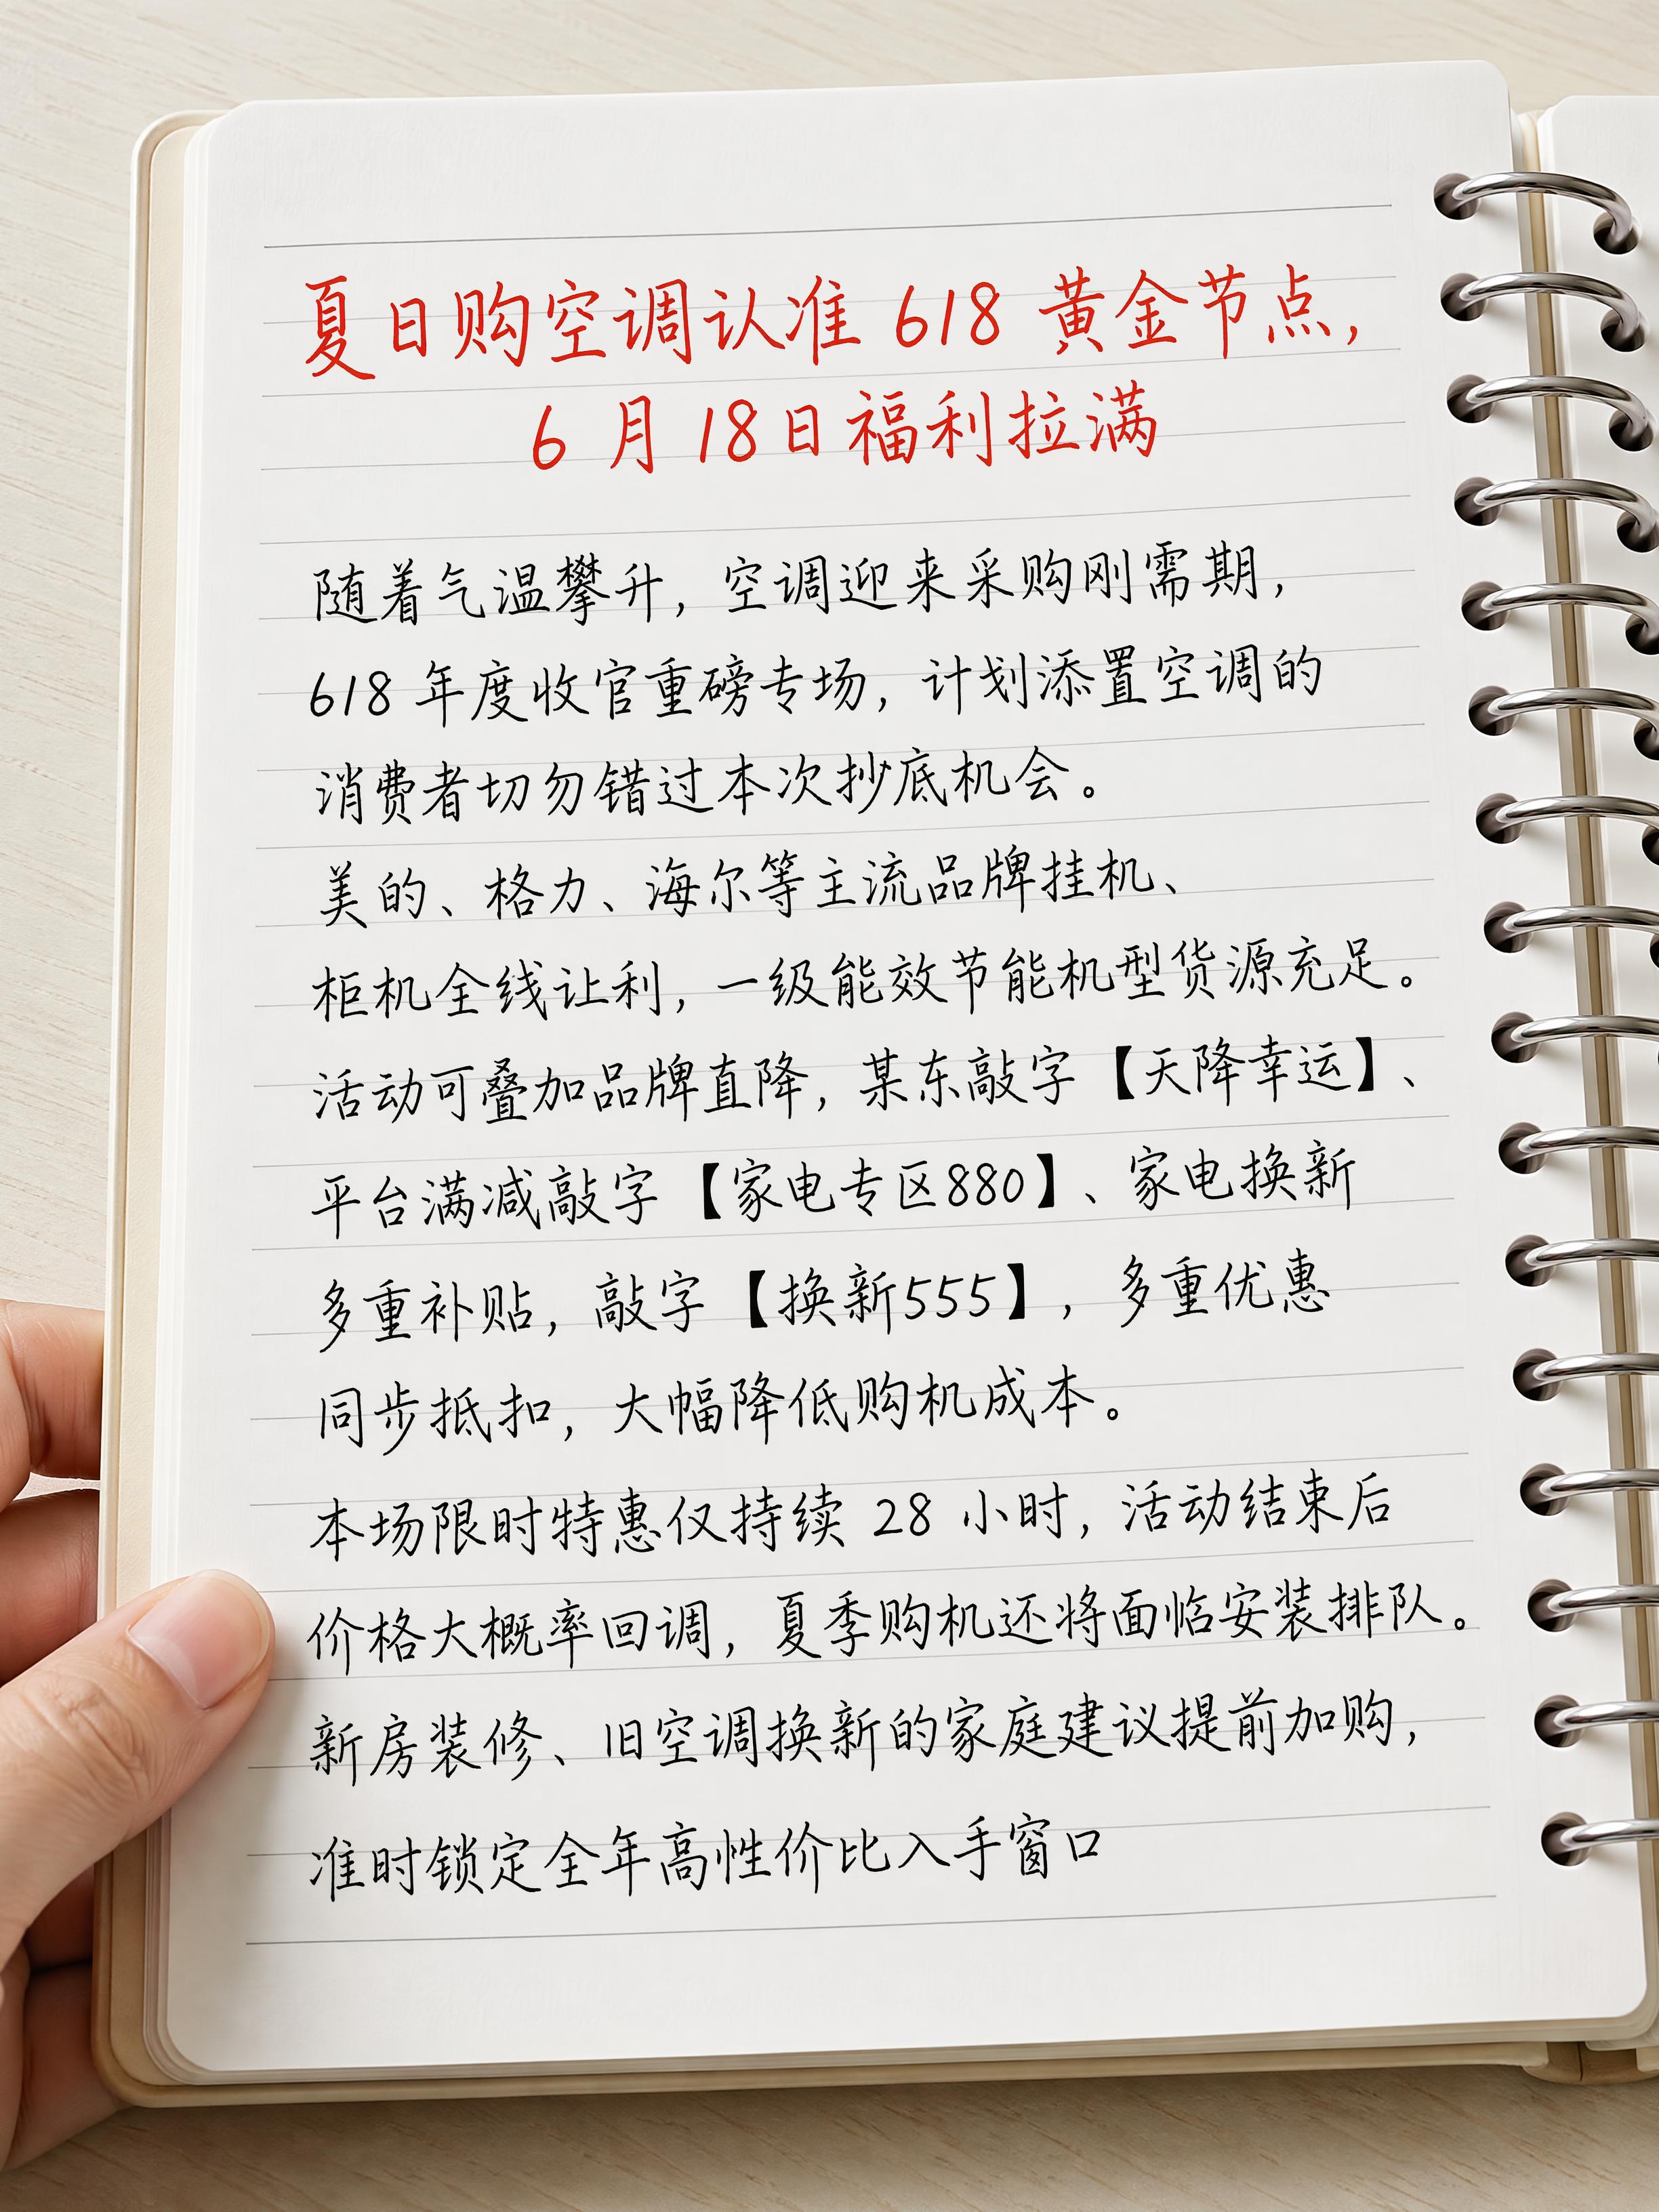 夏日购空调认准 618 黄金节点，
6 月 18日福利拉满
随着气温攀升，空调迎来采购刚需期，
618 年度收官重磅专场，计划添置空调的
消费者切勿错过本次抄底机会。
美的、格力、海尔等主流品牌挂机、
柜机全线让利，一级能效节能机型货源充足。
活动可叠加品牌直降，某东敲字【天降幸运】、
平台满减敲字【家电专区880】、家电换新
多重补贴，敲字【换新555】，多重优惠
同步抵扣，大幅降低购机成本。
本场限时特惠仅持续 28 小时，活动结束后
价格大概率回调，夏季购机还将面临安装排队。
新房装修、旧空调换新的家庭建议提前加购，
准时锁定全年高性价比入手窗口